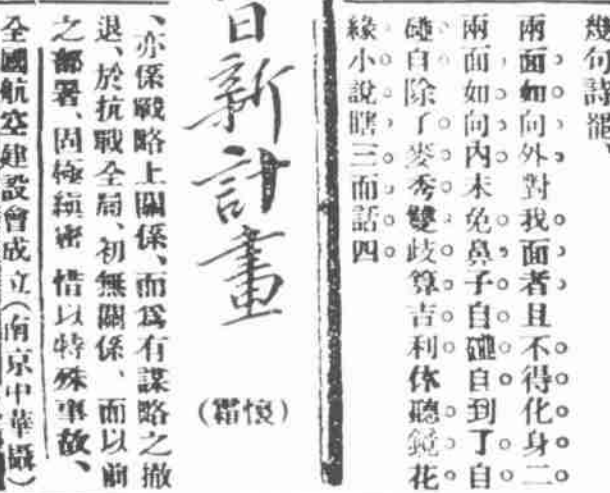 幾句詩罷、
兩面如向外，對我面者且不得化身二
兩面，如向內未免鼻子，自碰自到了自
碰自除了麥秀雙歧算吉利休聽鏡花
緣小說瞎，三面話四
日新計畫
(霜懷)
、亦係戰略上關係、而爲有謀略之撤
退、於抗戰全局、初無關係、而以前
之部署、固極縝密惜以特殊事故、
全國航空建設會成立(南京中華攝)